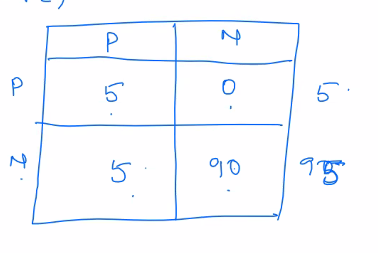 P N
P 5 0 5
N 5 90 95